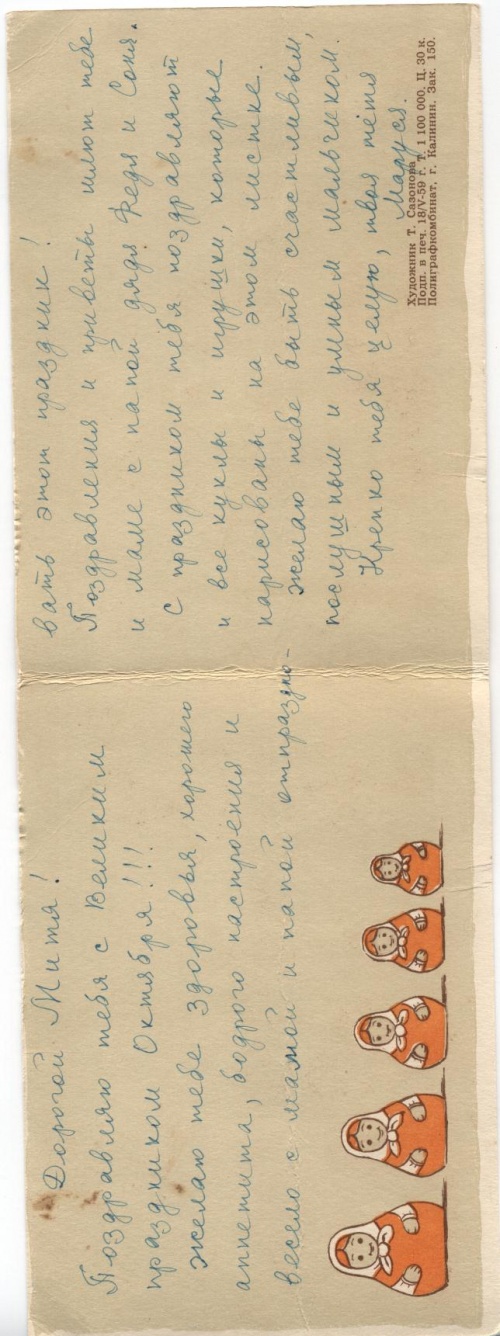 Дорогой Митя!
Поздравляю тебя с Великим
праздником Октября!!!
Желаю тебе здоровья, хорошего
аппетита, бодрого настроения и
весело с мамой и папой отпраздно-
вать этот праздник!
Поздравления и приветы шлют тебе
и маме с папой дядя Федя и Соня.
С праздником тебя поздравляют
и все куклы и игрушки, которые
нарисованы на этом листке.
Желаю тебе быть счастливым,
послушным и умным мальчиком.
Крепко тебя целую, твоя тётя
Маруся.
Художник Т. Сазонова
Подп. в печ. 18/V-59 г. Т. 1 100 000. Ц. 30 к.
Полиграфкомбинат, г. Калинин. Зак. 150.